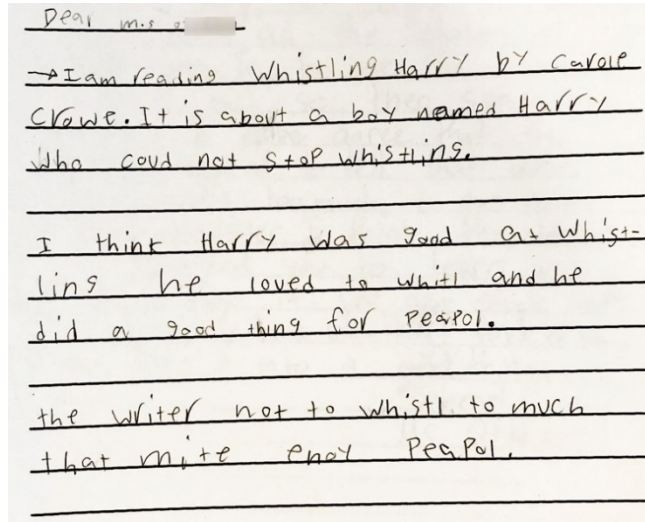 Dear m.s
→I am reading Whistling Harry by Carole
Crowe. It is about a boy named Harry
Who coud not stop whistling.
I think Harry was good at whist-
ling he loved to whitl and he
did a good thing for peapol.
the writer not to whistl to much
that mite enoy peapol.